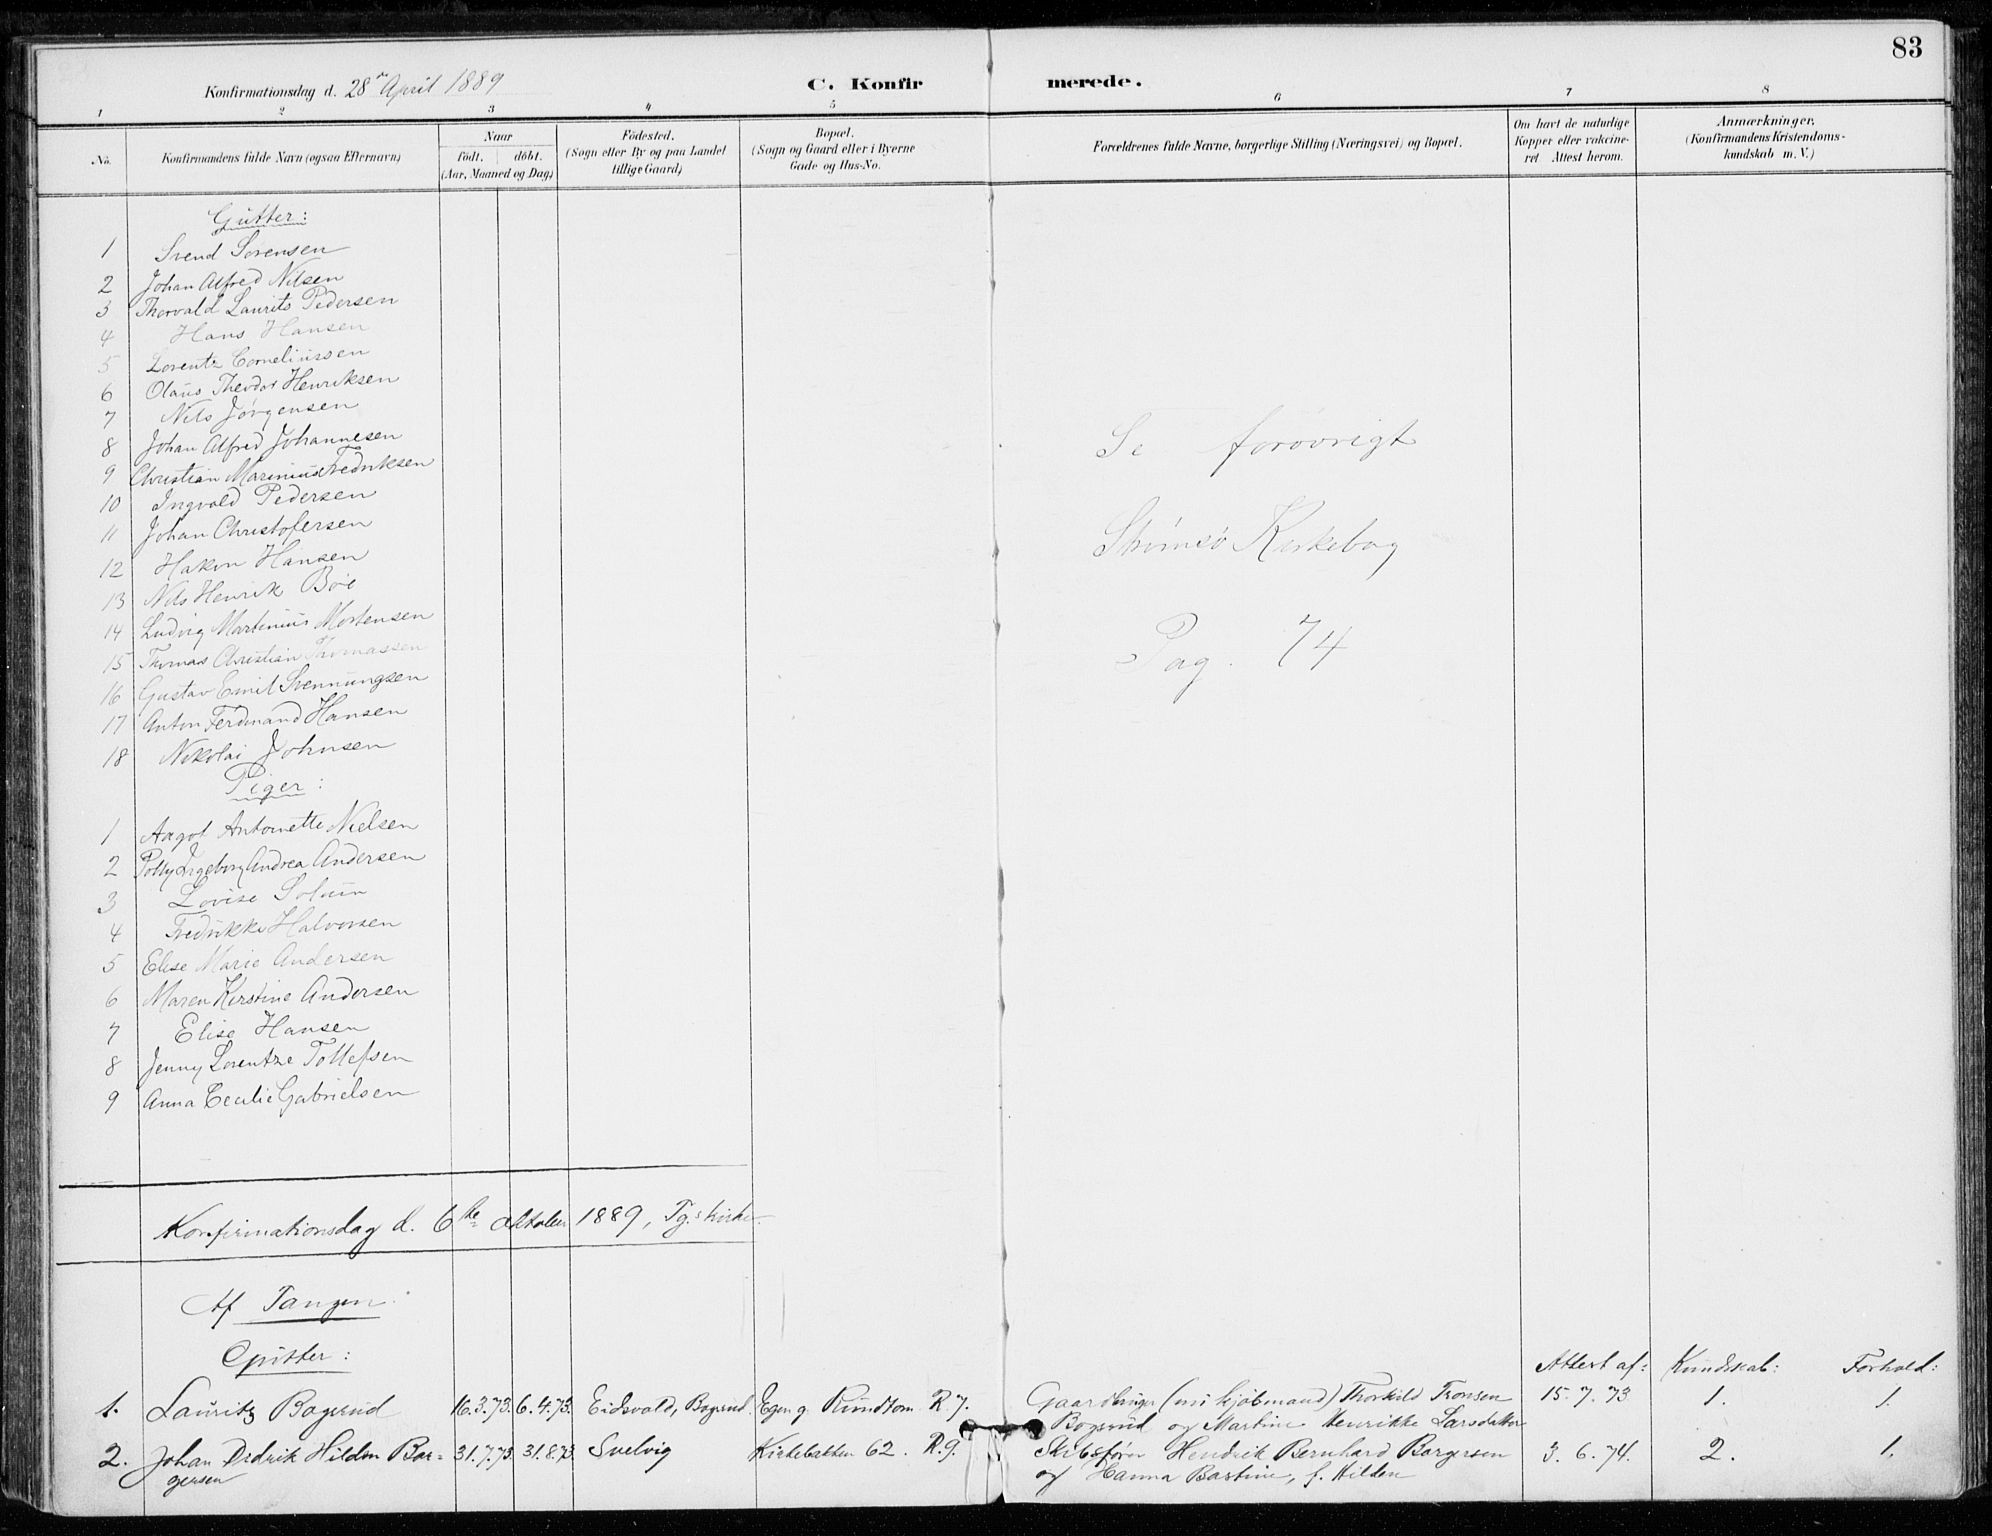 83
Konfirmationsdag d. 28de April 1889
C. Konfir merede.
1 2 3 4 5 6 7 8
No.
Konfirmandens fulde Navn (ogsaa Efternavn)
Naar
født. døbt.
(Aar, Maaned og Dag)
Fødested.
(Sogn eller By og paa Landet
tillige Gaard)
Bopæl.
(Sogn og Gaard eller i Byerne
Gade og Hus-No.
Forældrenes fulde Navne, borgerlige Stilling (Næringsvei) og Bopæl.
Om havt de naturlige
Kopper eller vakcine-
ret. Attest herom.
Anmærkninger.
(Konfirmandens Kristendoms-
kundskab m. V.)
Gutter:
1 Svend Sørensen
2 Johan Alfred Nilsen
3 Thorvald Laurits Pedersen
4 Hans Hansen
5 Lorentz Corneliussen
6 Olaus Theodor Henriksen
7 Nils Jørgensen
8 Johan Alfred Johannesen
9 Christian Marinius Fredriksen
10 Ingvald Pedersen
11 Johan Christofersen
12 Hakon Hansen
13 Nils Henrik Bøe
14 Ludvig Martinius Mortensen
15 Thomas Christian Thomassen
16 Gustav Emil Svennungsen
17 Anton Ferdinand Hansen
18 Nikolai Johnsen
Se forøvrigt
Strømsø Kirkebog
Pag. 74
Piger:
1 Aagot Antoinette Nielsen
2 Polly Ingeborg Andrea Andersen
3 Lovise Solum
4 Fredrikke Halvorsen
5 Elise Marie Andersen
6 Maren Kirstine Andersen
7 Elise Hansen
8 Jenny Lorentze Tollefsen
9 Anna Cecilie Gabrielsen
Konfirmationsdag d. 6te Oktober 1889, Tg.s kirke.
Af Tangen
Gutter:
Attest af: Kundskab: Forhold:
1. Lauritz Bogsrud 16.3.73. 6.4.73. Eidsvold, Bogsrud. Egen g. Rundtom R. 7. Gaardbruger (nu kjøbmand) Thorkild Tronsen 15.7.73 1. 1.
Bogsrud og Martine Henrikke Larsdatter
2. Johan Didrik Hilden Bor= 31.7.73. 31.8.73 Svelvig Kirkebakken 62. R. 9. Skibsfører Hendrik Bernhard Borgersen 3.6.74. 2. 1.
gersen og Hanna Bastine, f. Hilden